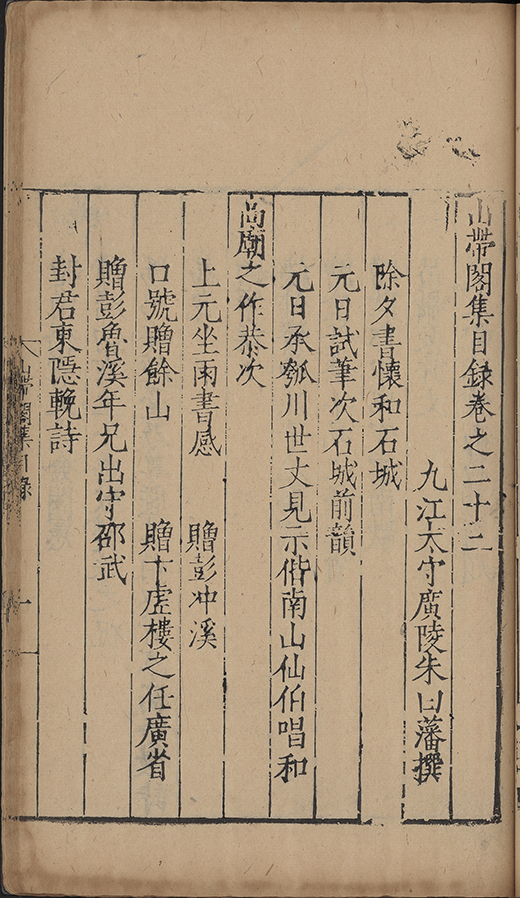 山帶閣集目錄卷之二十二
九江太守廣陵朱曰藩撰
除夕書懷和石城
元日試筆次石城前韻
元日承瓠川世丈見示偕南山仙伯唱和
尚廟之作恭次
上元坐雨書感 贈彭冲溪
口號贈餘山 贈卞虛樓之任廣省
贈彭魯溪年兄出守邵武
封君東隱輓詩
山帶閣集目錄 一